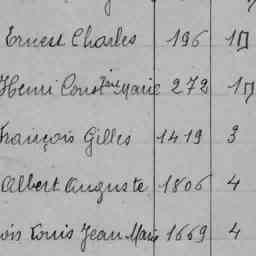 Ernest Charles 196 1
Henri Const.ine Marie 272 1
François Gilles 1419 3
Albert Auguste 1806 4
Louis Jean Marie 1669 4